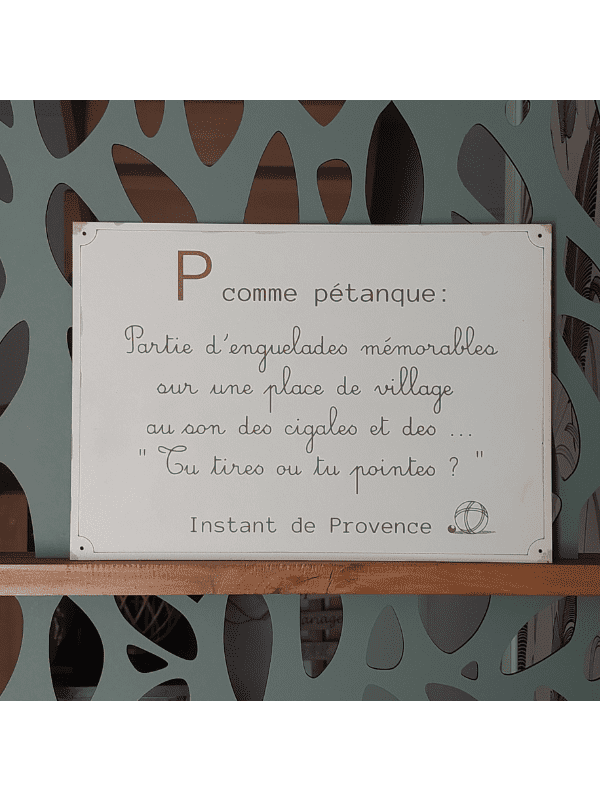 P comme pétanque:
Partie d'enguelades mémorables
sur une place de village
au son des cigales et des ...
" Tu tires ou tu pointes ? "
Instant de Provence